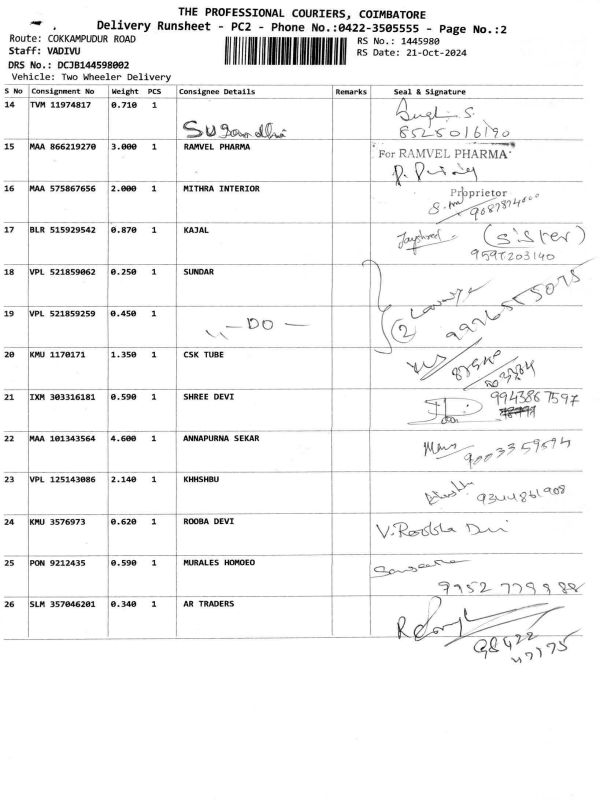 THE PROFESSIONAL COURIERS, COIMBATORE
Delivery Runsheet - PC2 - Phone No.:0422-3505555 - Page No.:2
Route: COKKAMPUDUR ROAD
RS No.: 1445980
Staff: VADIVU
RS Date: 21-Oct-2024
DRS No.: DCJB144598002
Vehicle: Two Wheeler Delivery
S No Consignment No Weight PCS Consignee Details Remarks Seal & Signature
14 TVM 11974817 0.710 1
Sugandhi
8525016190
15 MAA 866219270 3.000 1 RAMVEL PHARMA
For RAMVEL PHARMA
Proprietor
16 MAA 575867656 2.000 1 MITHRA INTERIOR
17 BLR 515929542 0.870 1 KAJAL
(Sister)
9597203140
18 VPL 521859062 0.250 1 SUNDAR
19 VPL 521859259 0.450 1
,, - DO -
2
20 KMU 1170171 1.350 1 CSK TUBE
21 IXM 303316181 0.590 1 SHREE DEVI
9943867597
22 MAA 101343564 4.600 1 ANNAPURNA SEKAR
9003359594
23 VPL 125143086 2.140 1 KHHSHBU
9344861908
24 KMU 3576973 0.620 1 ROOBA DEVI
V. Roobha Devi
25 PON 9212435 0.590 1 MURALES HOMOEO
9952 779988
26 SLM 357046201 0.340 1 AR TRADERS